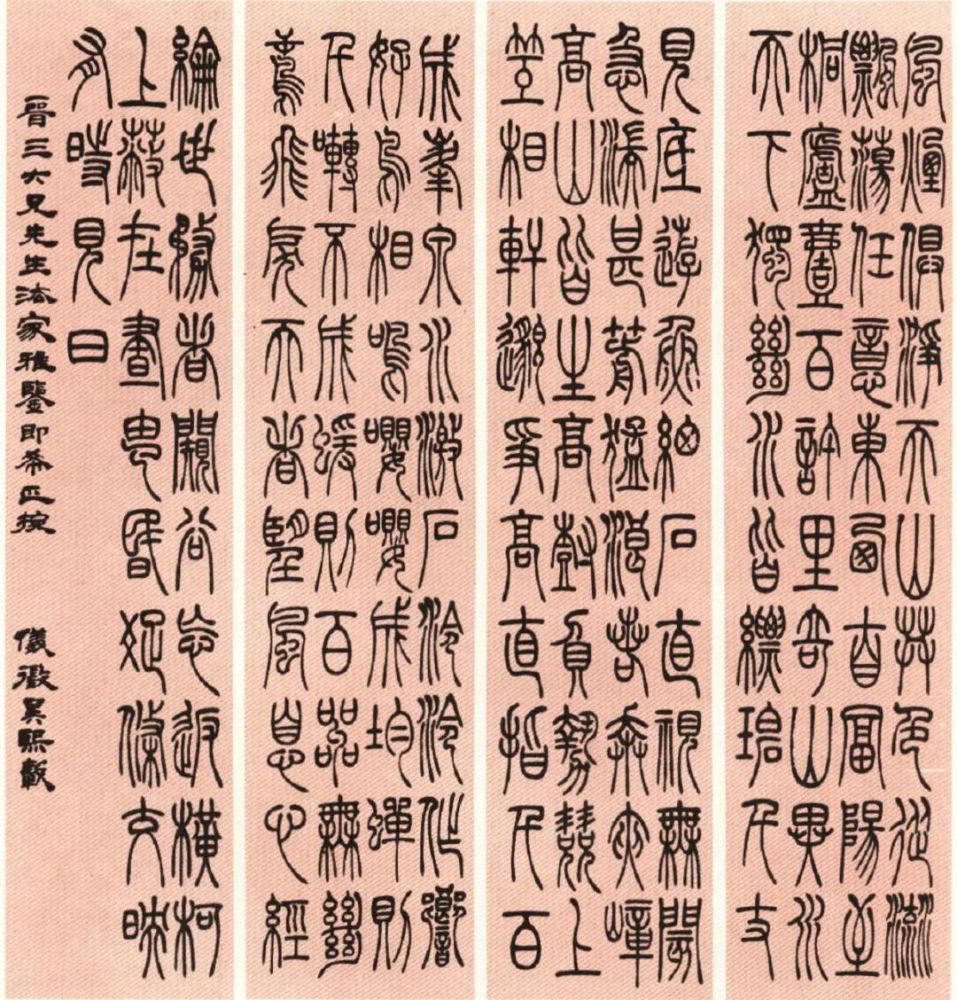 風煙俱淨天山共色從流
飄蕩任意東西自富陽至
桐廬壹百許里奇山異水
天下獨絕水皆縹碧千丈
見底游魚細石直視無閡
急湍甚箭猛浪若奔夾嶂
高山皆生高樹負勢競上
互相軒邈爭高直指千百
成峯泉水激石泠泠作響
好鳥相鳴嚶嚶成均蟬則
千囀不成蝯則百嘂無絕
鳶飛戾天者望風息心經
綸世務者闚谷忘返橫柯
上蔽在晝昏疏條交映
有時見日
晉三大兄先生法家雅鑒即希正捥
儀徵吳熙載